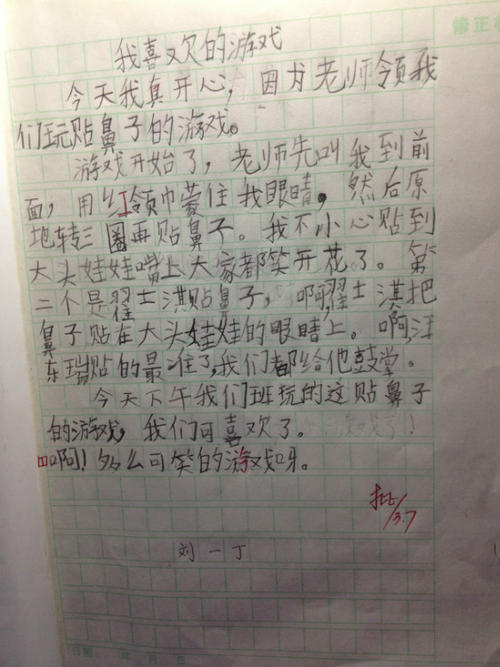 修正
我喜欢的游戏
今天我真开心，因为老师领我
们玩贴鼻子的游戏。
游戏开始了，老师先叫我到前
面，用红领巾蒙住我眼睛，然后原
地转三圈再贴鼻子。我不小心贴到
大头娃娃嘴上大家都笑开花了。第
二个是翟士淇贴鼻子，啊翟士淇把
鼻子贴在大头娃娃的眼睛上。啊，汪
东瑞贴的最准了，我们都给他鼓掌。
今天下午我们班玩的这贴鼻子
的游戏，我们可喜欢了。
啊！多么可笑的游戏呀。
批
3.7
刘一丁
日期 年 月 日